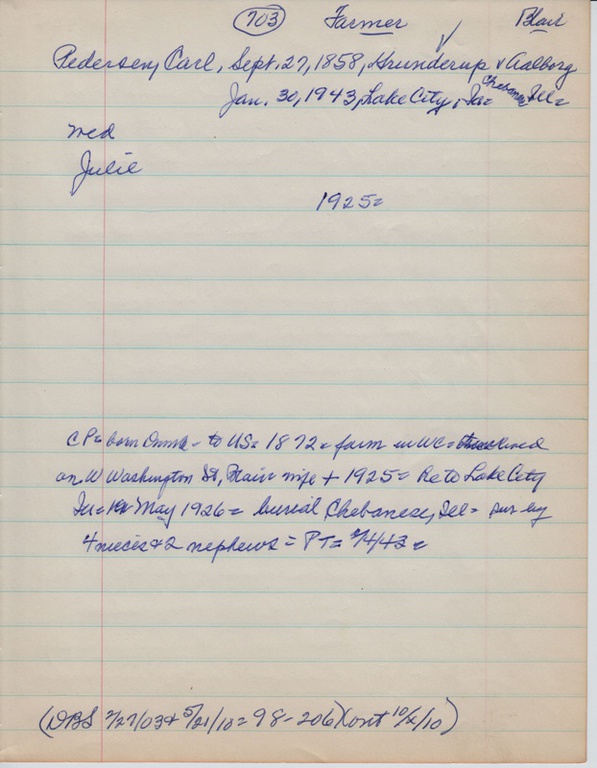 703 Farmer Blair
Pedersen, Carl, Sept. 27, 1858, Grunderup v Aalborg
Jan. 30, 1943, Lake City, Ia = Chebanse Ill =
Wed
Julie
1925 =
CP = born Dnmk - to US = 1872 = farm in WC = lived
on W Washington St, Blair = wife + 1925 = Re to Lake City
Ia = May 1926 = burial Chebanese, Ill = sur by
4 nieces & 2 nephews = PT = 2/4/43 =
(DBS 2/27/03 & 5/21/10 = 98-206) (ont 10/2/10)